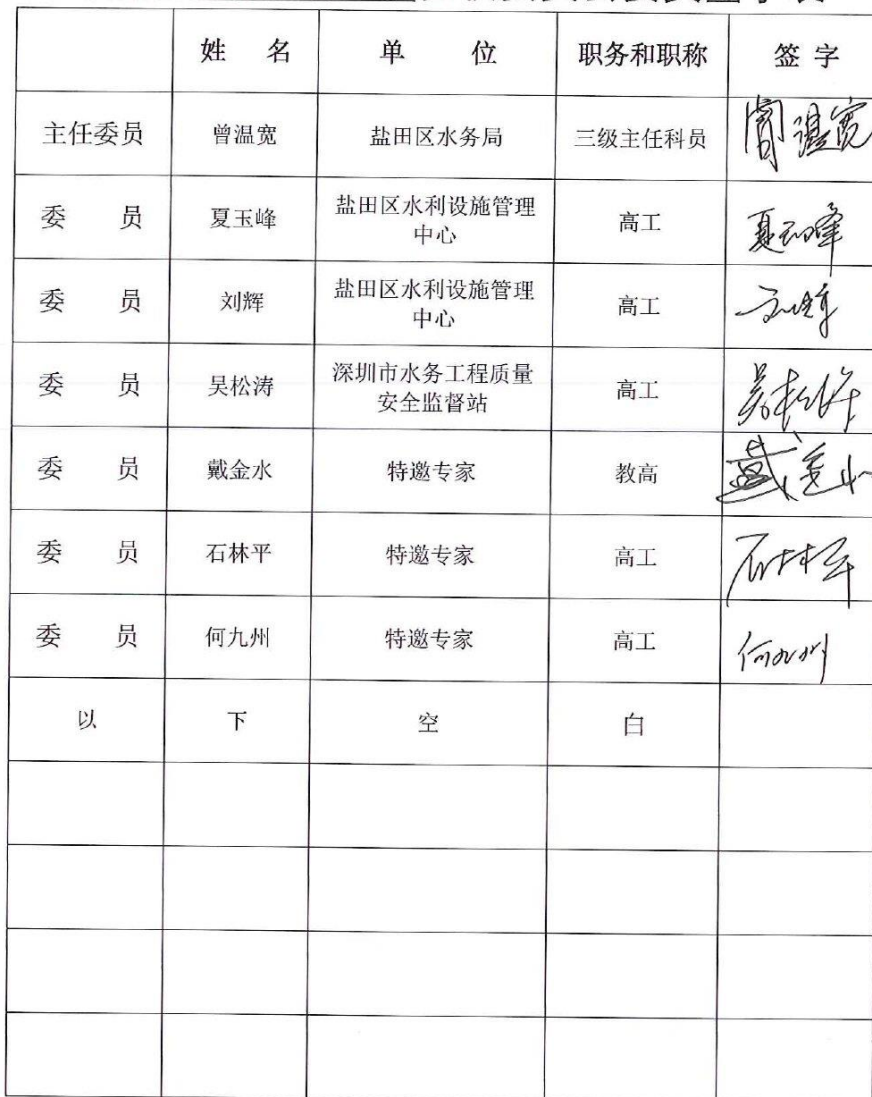 姓 名 单 位 职务和职称 签 字
主任委员 曾温宽 盐田区水务局 三级主任科员 曾温宽
委 员 夏玉峰 盐田区水利设施管理中心 高工 夏玉峰
委 员 刘辉 盐田区水利设施管理中心 高工 刘辉
委 员 吴松涛 深圳市水务工程质量安全监督站 高工 吴松涛
委 员 戴金水 特邀专家 教高 戴金水
委 员 石林平 特邀专家 高工 石林平
委 员 何九州 特邀专家 高工 何九州
以 下 空 白